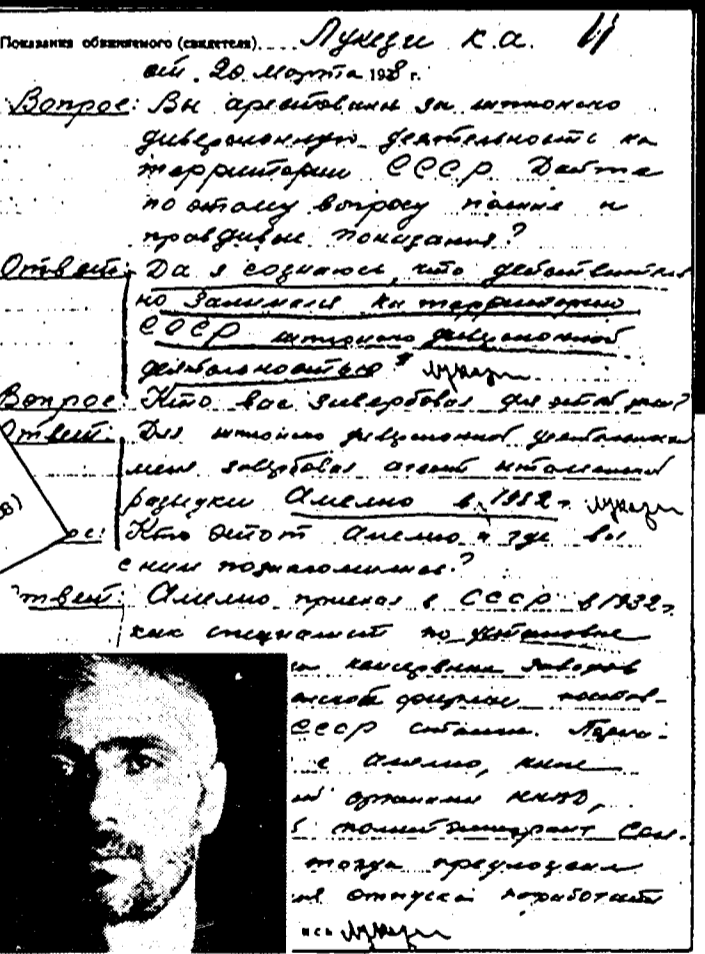 11
Показания обвиняемого (свидетеля) Лукези К.А.
от 20 марта 1938 г.
Вопрос: Вы арестованы за шпионско
диверсионную деятельность на
территории СССР Дайте
по этому вопросу полные и
правдивые показания?
Ответ: Да я сознаюсь, что действитель
но занимался на территории
СССР шпионско диверсионной
деятельностью Лукези
Вопрос: Кто вас завербовал для этой
Ответ: Для шпионско диверсионной деятельности
меня завербовал агент итальянской
разведки Амелио в 1932 г Лукези
ос: Кто этот Амелио и где вы
с ним познакомились?
твет: Амелио приехал в СССР в 1932 г
как специалист по установке
консервных заводов
ской фирмы
СССР
с Амелио, ныне
органами НКВД,
политэмигрант
тогда предложил
отпуска поработать
ись Лукези